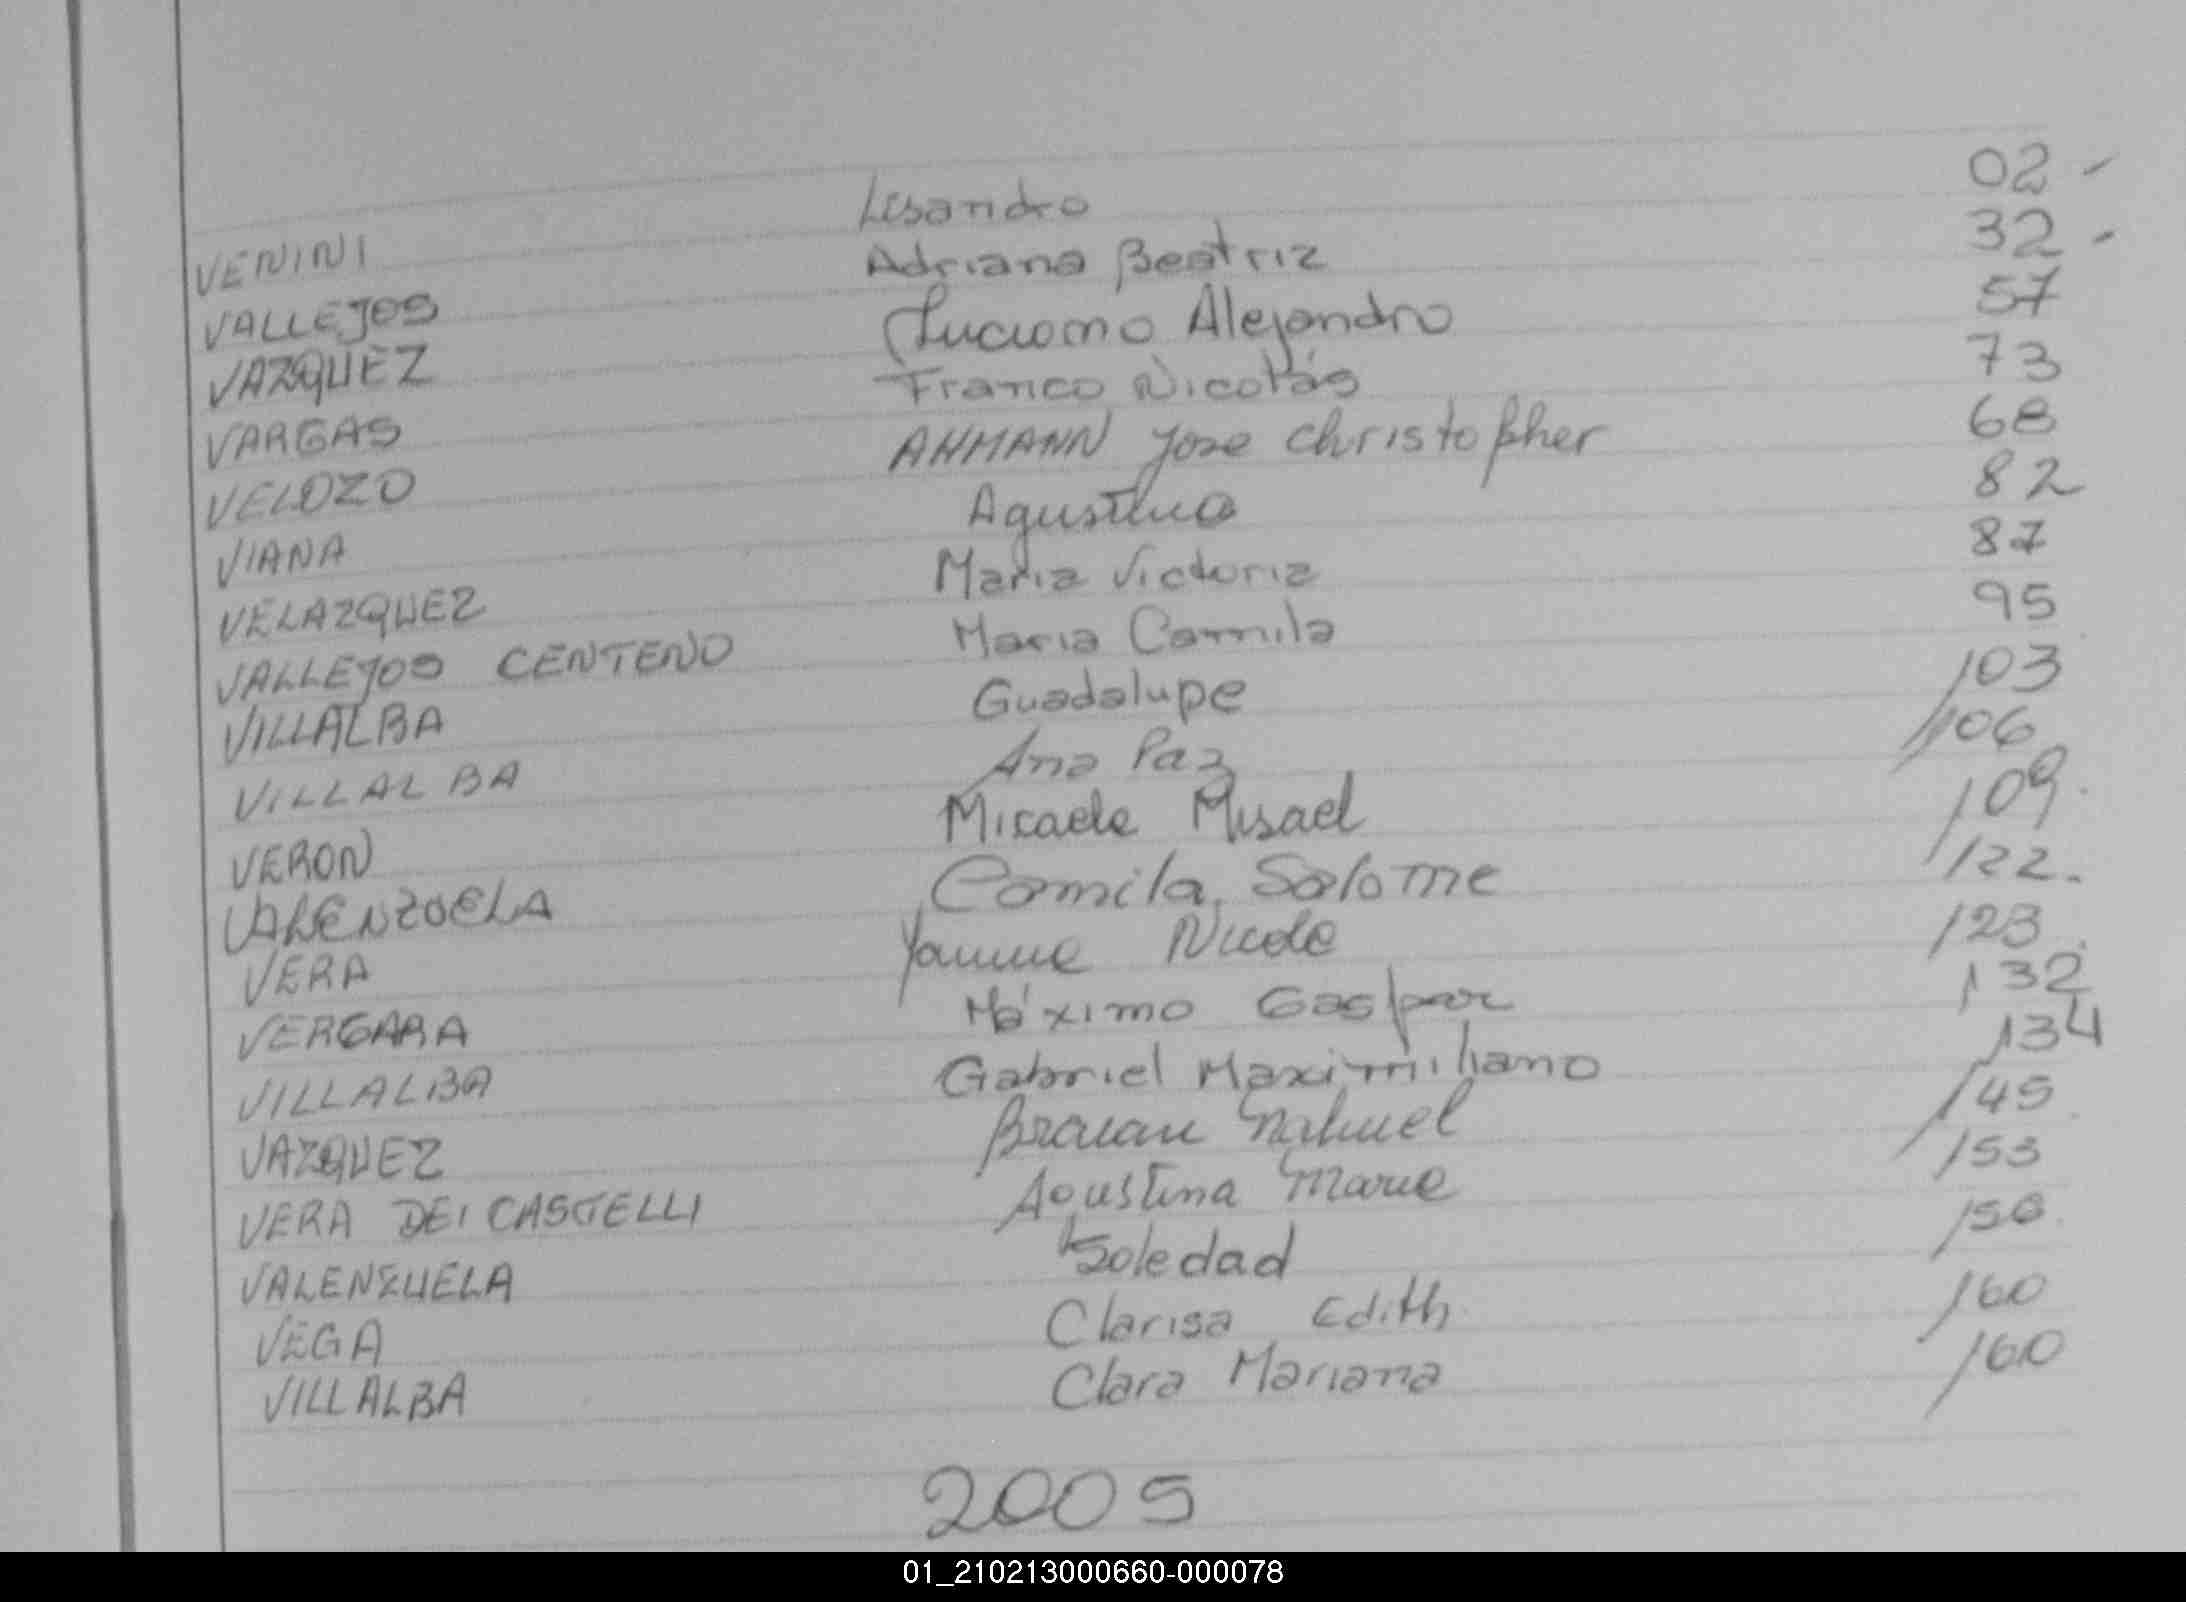 VENINI Lisandro 02 -
VALLEJOS Adriana Beatriz 32 -
VAZQUEZ Luciano Alejandro 57
VARGAS Franco Nicolás 73
VELOZO AHMANN Jose Christopher 68
VIANA Agustina 82
VELAZQUEZ Maria Victoria 87
VALLEJOS CENTENO Maria Camila 95
VILLALBA Guadalupe 103
VILLALBA Ana Paz 106
VERON Micaela Misael 109
VALENZUELA Camila Salome 122.
VERA Yanine Nicole 123
VERGARA Máximo Gaspar 132
VILLALBA Gabriel Maximiliano 134
VAZQUEZ Braian Nahuel 145
VERA DEI CASTELLI Agustina Marie 153
VALENZUELA Soledad 156
VEGA Clarisa Edith 160
VILLALBA Clara Mariana 160
2005
01_210213000660-000078